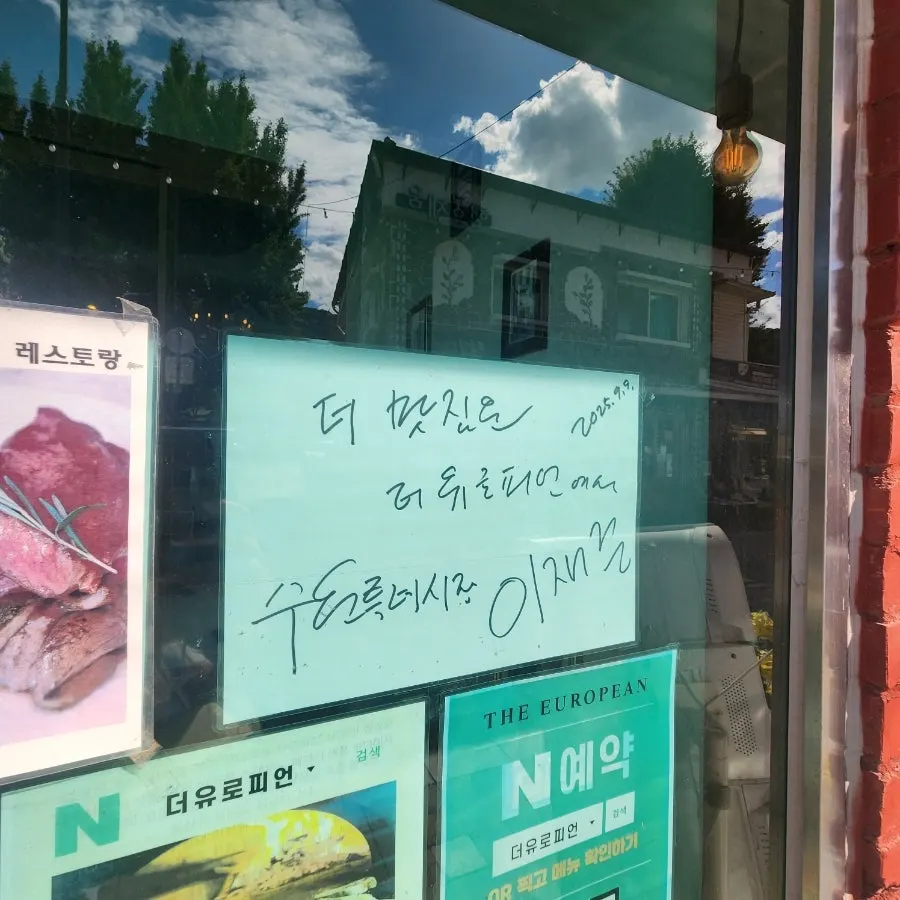 레스토랑
더 맛집은
2025.9.9.
더 유로피언에서
수원특례시장 이재준
N 더유로피언 검색
THE EUROPEAN
N예약
더유로피언 검색
QR 찍고 메뉴 확인하기